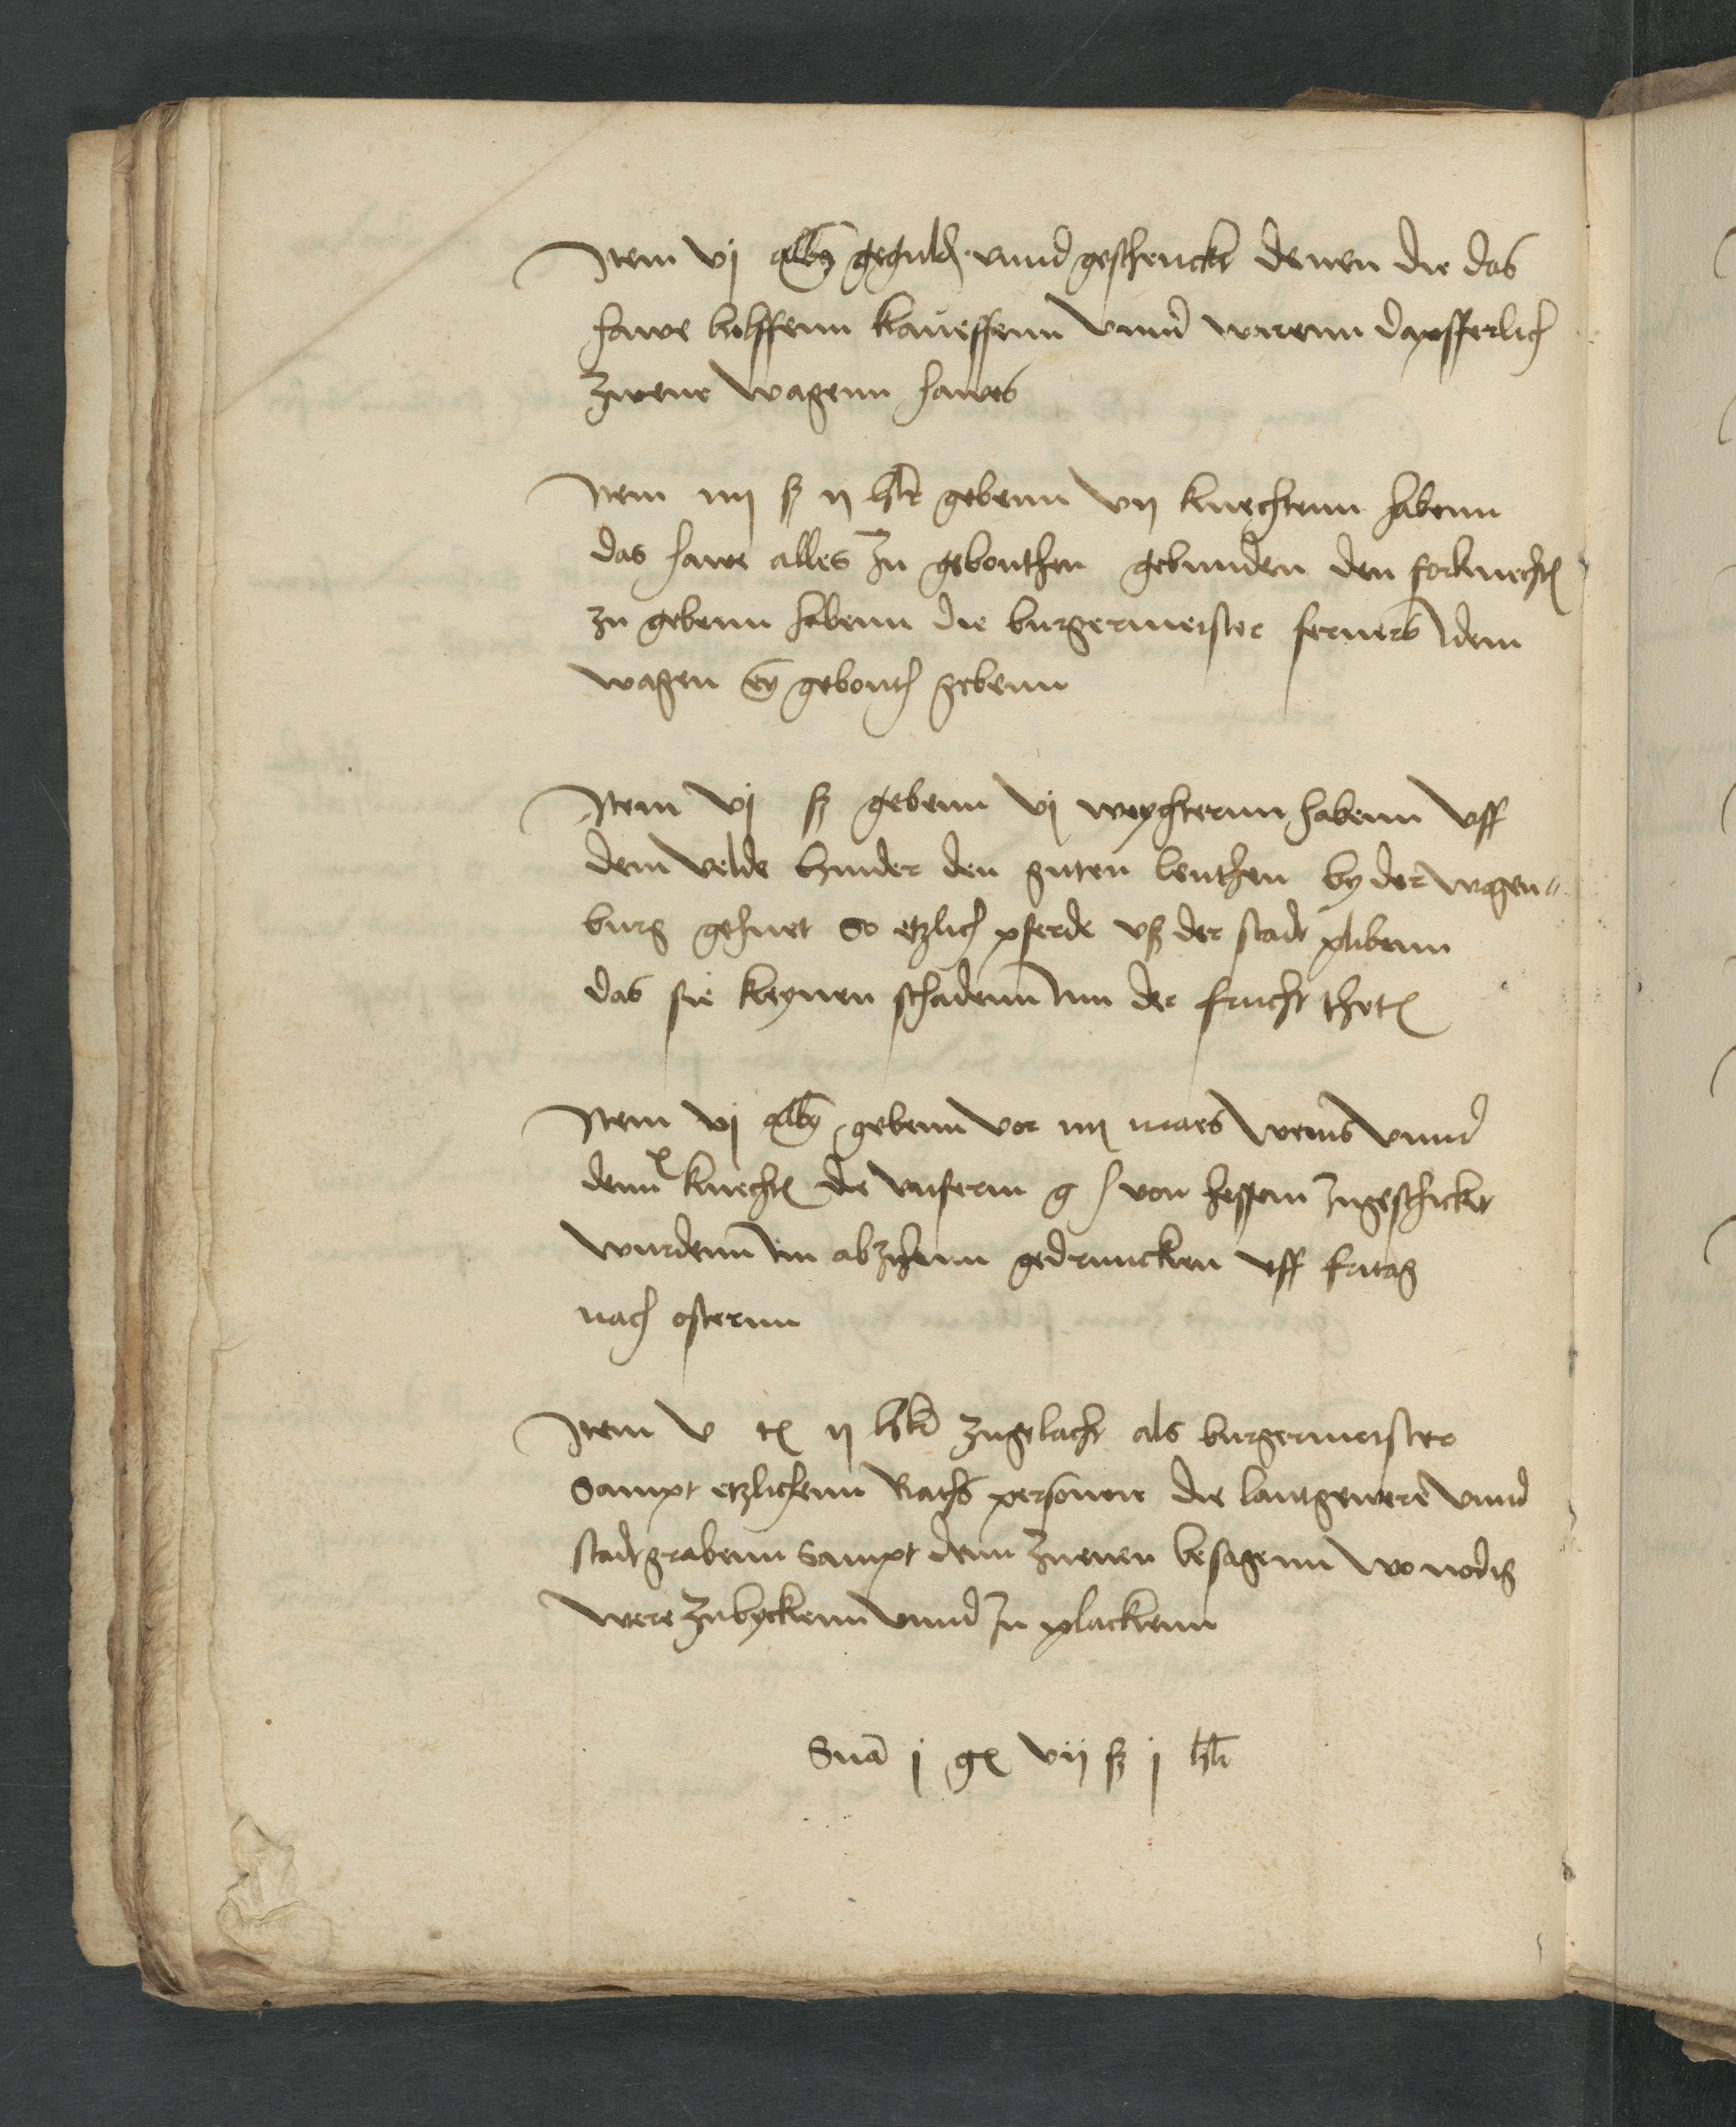 Item vj alb geguld vnnd geschenckt denen die das
hawe holffenn kaueffenn vnnd warenn dapfferlich
zwene wagenn hawes
Item iiij ß ij hlr gebenn vij knechtenn habenn
das hawe alles zu gebonthen gebunden den forknecht
zu gebenn habenn die burgermeister ferners idem
wagen ey gebonth gebenn
Item vj ß gebenn vj wechternn habenn vff
dem velde hinder den guten leuthen by der wagen„
burg gehuet so etzlich pferde vß der stadt plibenn
das sie keynen schadenn inn der frucht thet
Item vj alb gebenn vor iiij maes weins vnnd
denn x knecht die vnserm g h von hessenn zugeschickt
wurdenn im abzihenn gedrunckenn vff fritag
nach osternn
Item v t ij hlr zugelacht als burgermeister
sampt etzlichenn Raths personen die lantgewere vnnd
stadtgrabenn sampt denn zuenen besagenn wo nodig
were zubickenn vnnd zu plackenn
Sua j g vij ß j hlr